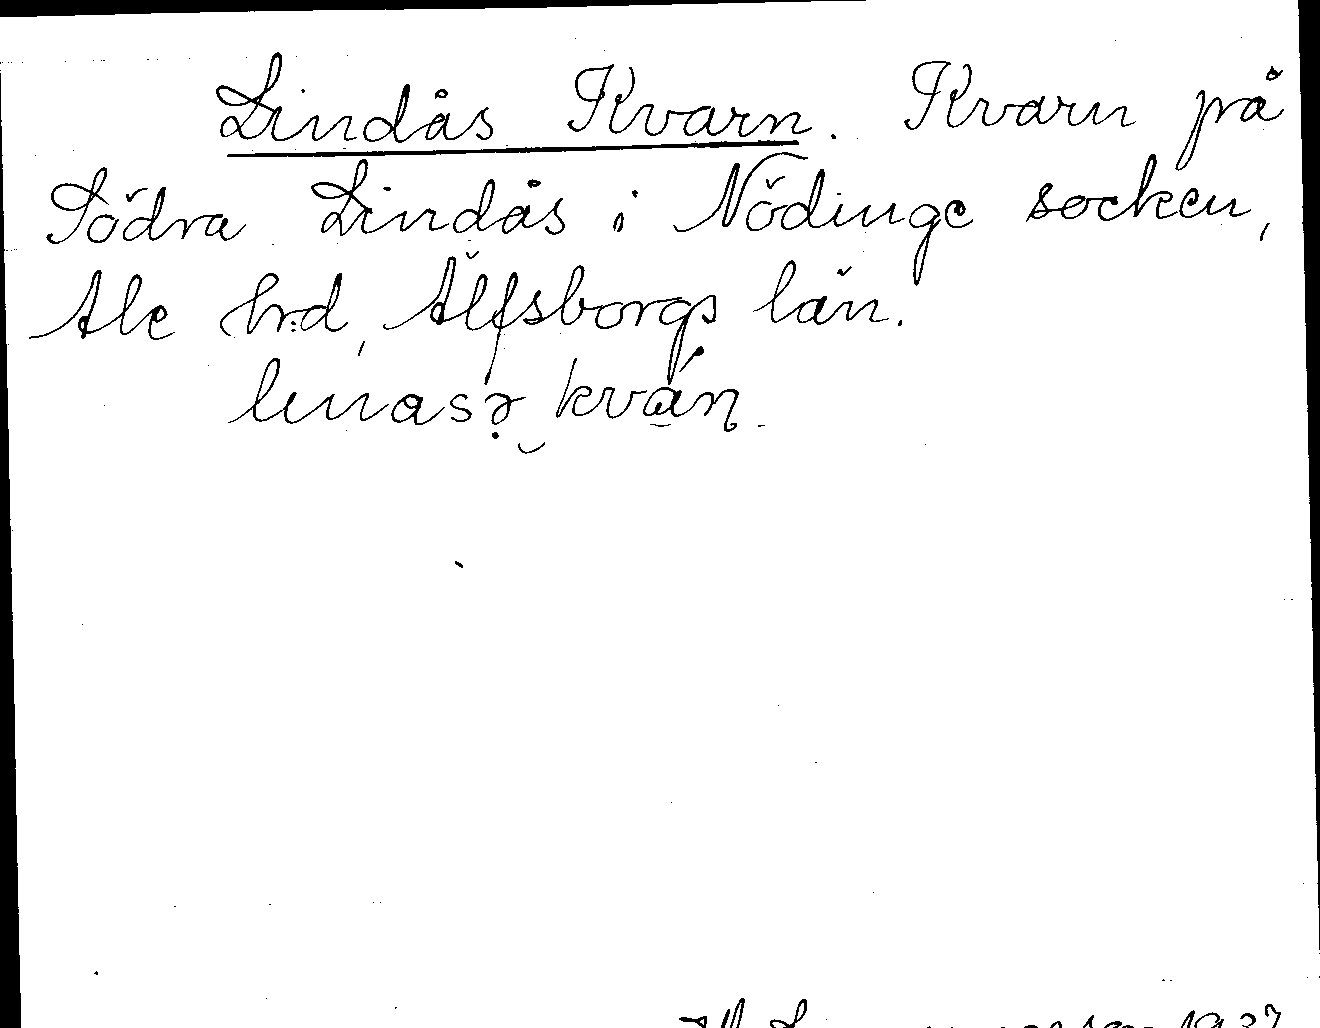 Lindås Kvarn. Kvarn på
Södra Lindås i Nödinge socken,
Ale hrd, Älfsborgs län.
1937